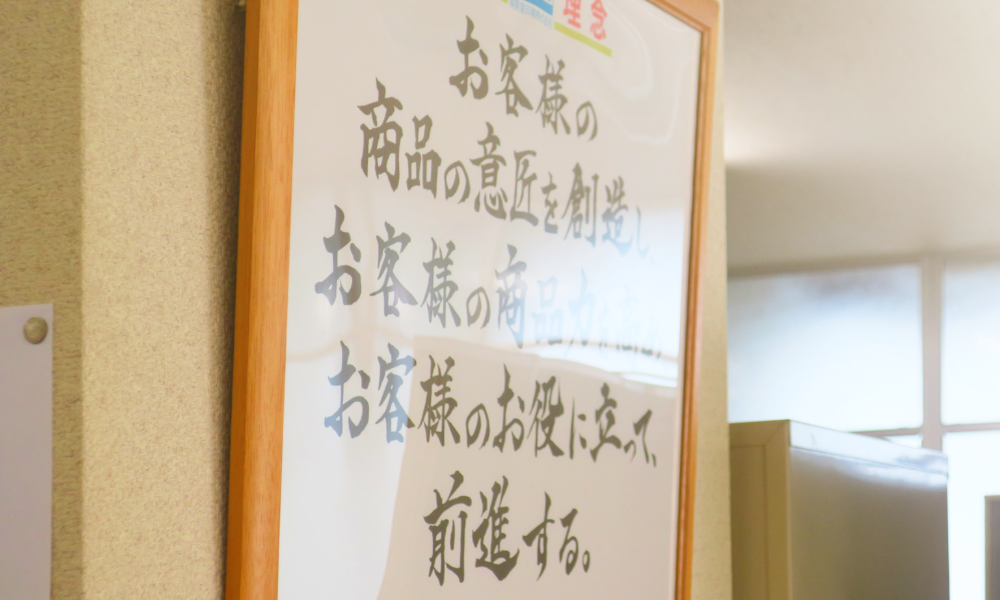 理念
お客様の
商品の意匠を創造し
お客様の商品力を高め
お客様のお役に立って、
前進する。